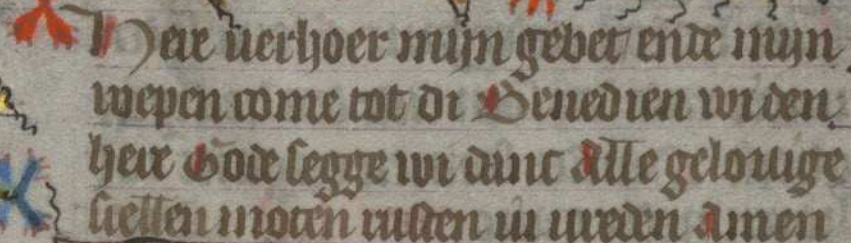 Here uerhoer mijn gebet ende mijn
roepen come tot di Benedien wi den
here Gode segge wi danc Alle gelouige
siellen moten rusten in vreden Amen